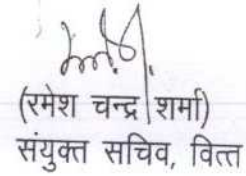 (रमेश चन्द्र शर्मा)
संयुक्त सचिव, वित्त